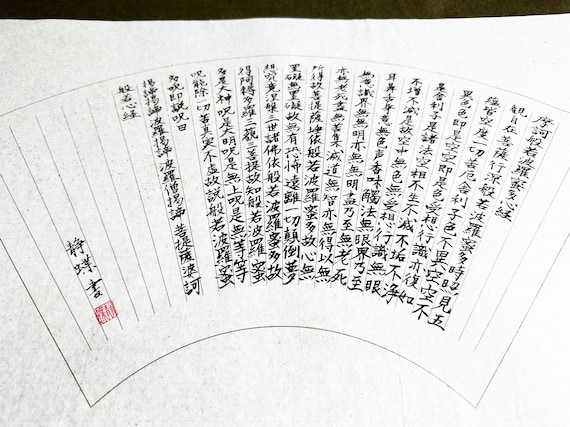 摩訶般若波羅蜜多心経
観自在菩薩行深般若波羅蜜多時照見五
蘊皆空度一切苦厄舎利子色不異空空不
異色色即是空空即是色受想行識亦復如
是舎利子是諸法空相不生不滅不垢不浄
不増不減是故空中無色無受想行識無眼
耳鼻舌身意無色声香味觸法無眼界乃至
無意識界無無明亦無無明盡乃至無老死
亦無老死盡無苦集滅道無智亦無得以無
所得故菩提薩埵依般若波羅蜜多故心無
罣礙無罣礙故無有恐怖遠離一切顛倒夢
想究竟涅槃三世諸佛依般若波羅蜜多故
得阿耨多羅三藐三菩提故知般若波羅蜜
多是大神呪是大明呪是無上呪是無等等
呪能除一切苦真実不虚故説般若波羅蜜
多呪即説呪曰
揭諦揭諦波羅揭諦波羅僧揭諦菩提薩波訶
般若心経
静蝶書